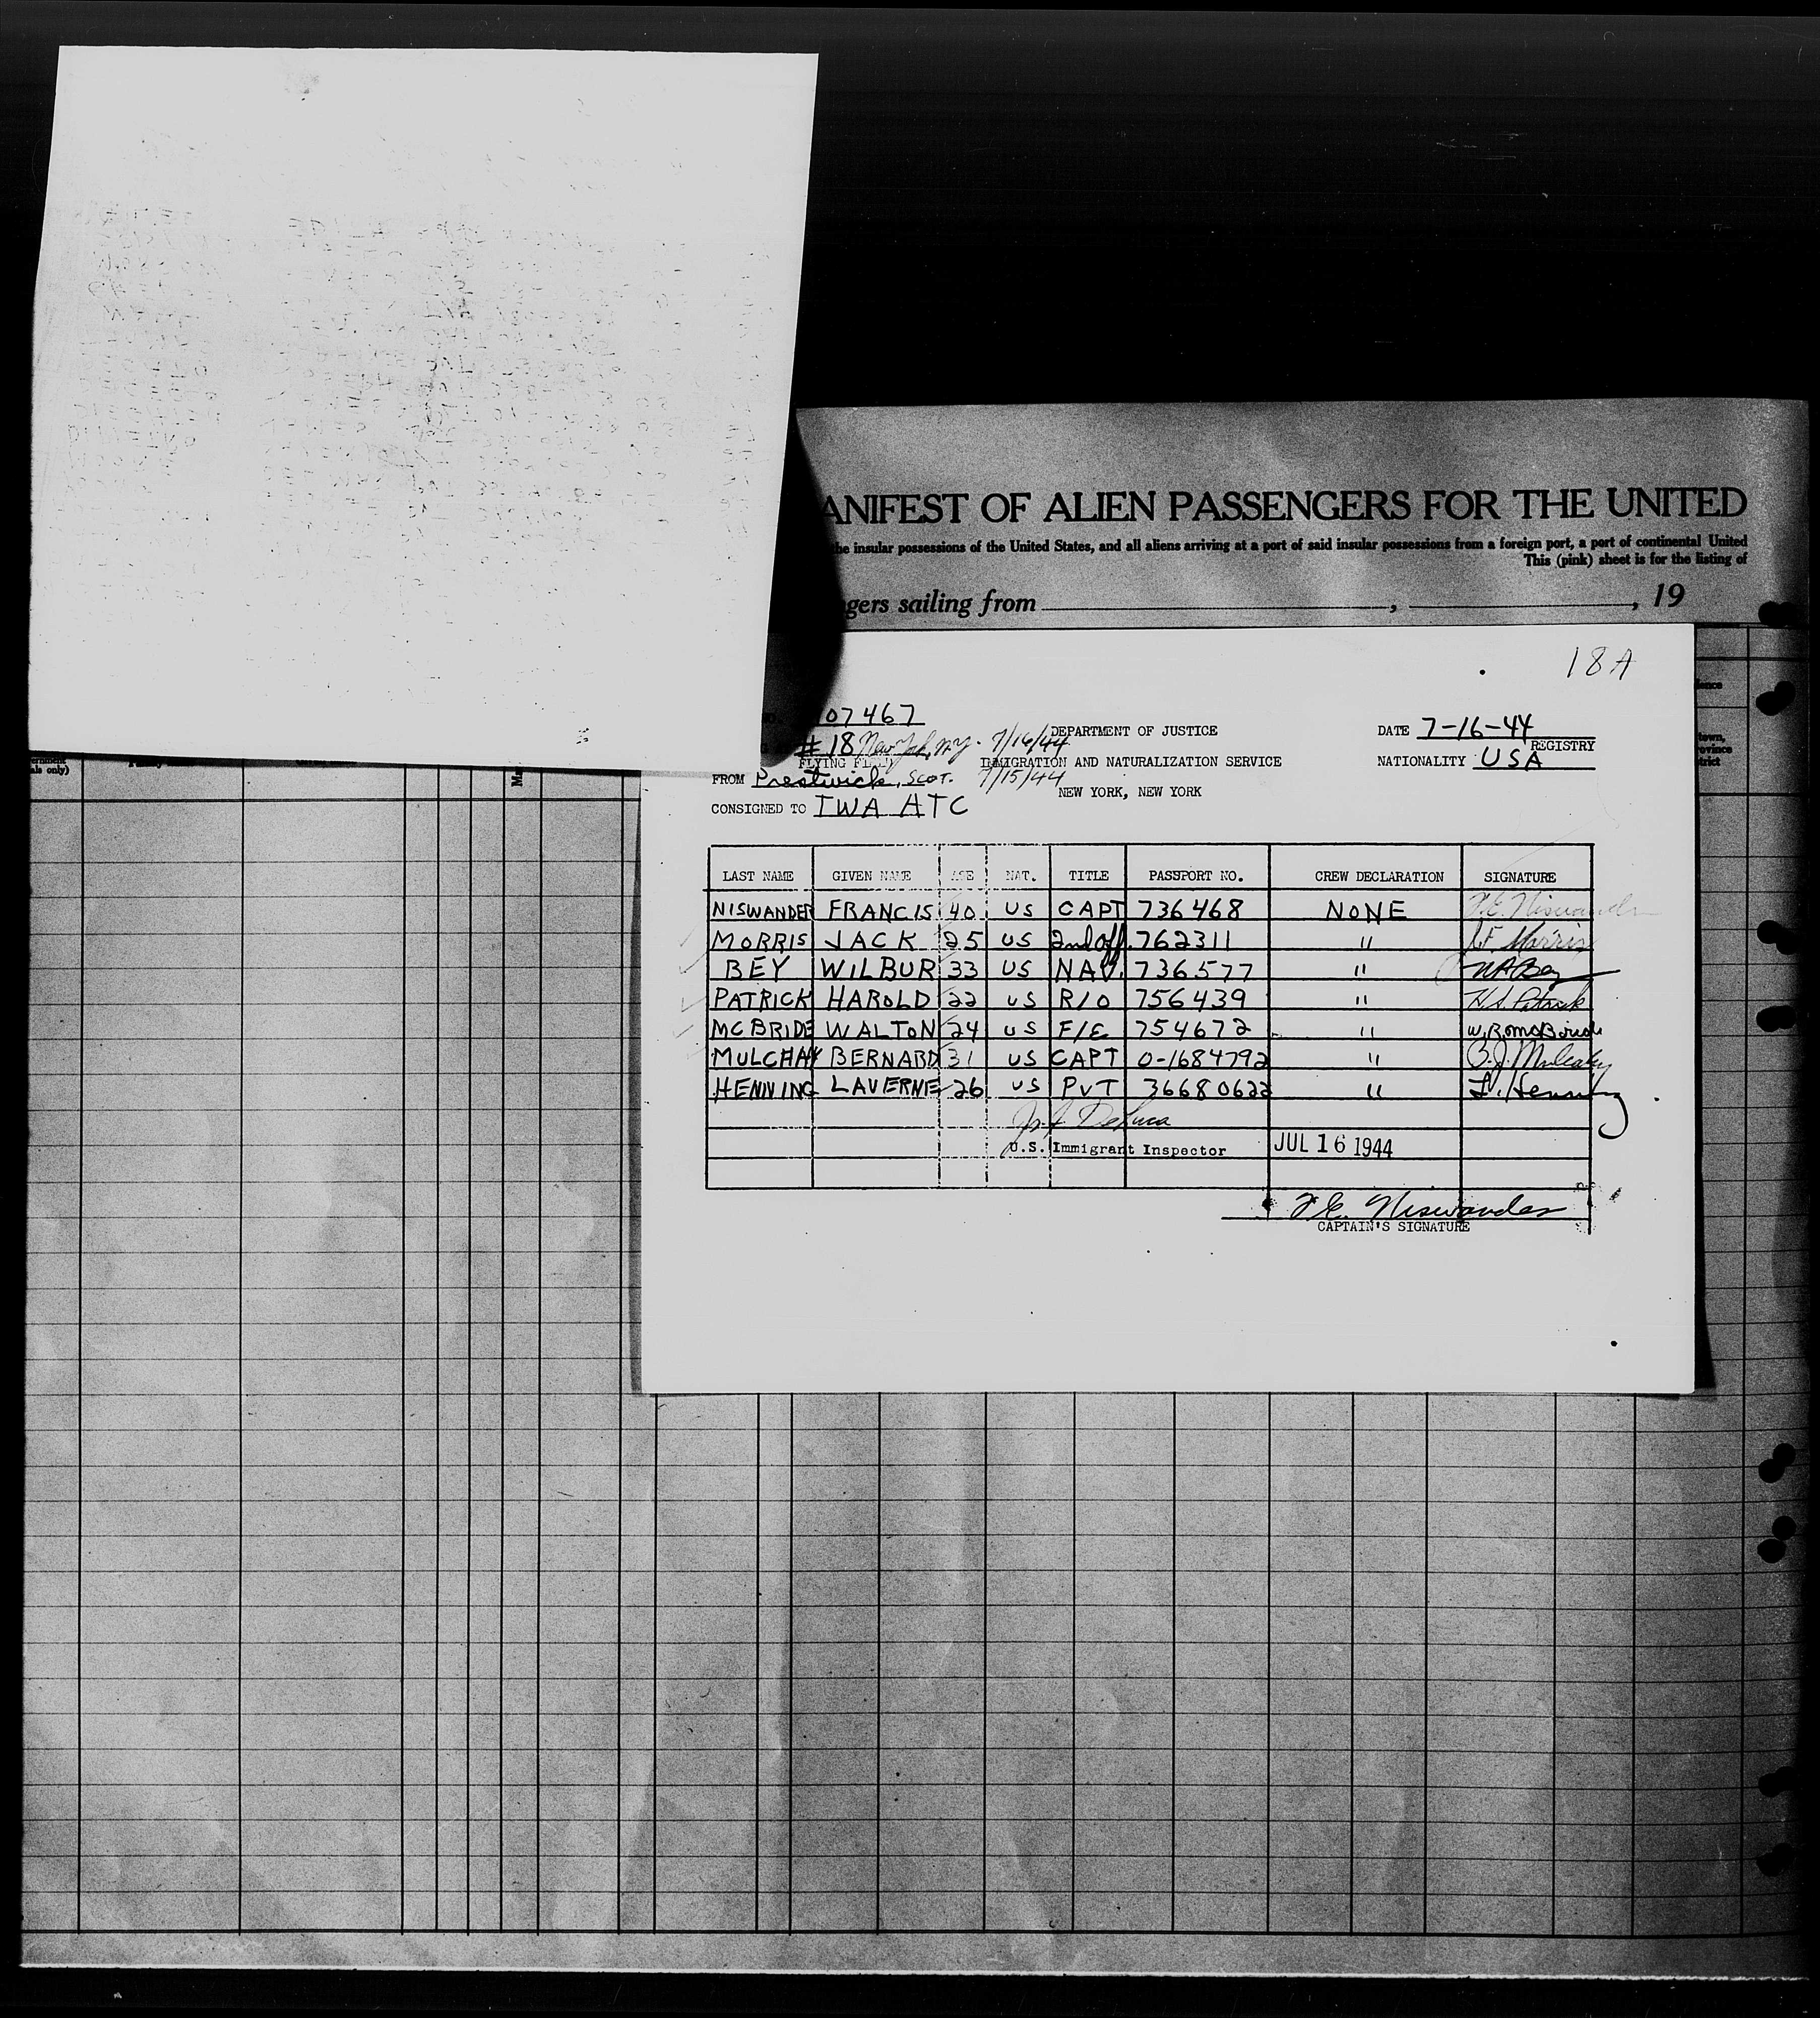 ANIFEST OF ALIEN PASSENGERS FOR THE UNITED
the insular possessions of the United States, and all aliens arriving at a port of said insular possessions from a foreign port, a port of continental United
This (pink) sheet is for the listing of
gers sailing from , , 19
18A
07467
DEPARTMENT OF JUSTICE
DATE 7-16-44
#18 New York, N.Y. 7/16/44
REGISTRY
FLYING FIELD
IMMIGRATION AND NATURALIZATION SERVICE
NATIONALITY USA
FROM Prestwick, SCOT. 7/15/44
NEW YORK, NEW YORK
CONSIGNED TO TWA ATC
LAST NAME GIVEN NAME AGE NAT. TITLE PASSPORT NO. CREW DECLARATION SIGNATURE
NISWANDER FRANCIS 40 US CAPT 736468 NONE F.E. Niswander
MORRIS JACK 25 US 2nd off. 762311 " J.F. Morris
BEY WILBUR 33 US NAV. 736577 " W.A. Bey
PATRICK HAROLD 22 US R/O 756439 " H.S. Patrick
MCBRIDE WALTON 24 US F/E 754672 "
MULCHAY BERNARD 31 US CAPT 0-1684792 " B.J. Mulcahy
HENNING LAVERNE 26 US PVT 36680622 " L. Henning
DeLuca
U.S. Immigrant Inspector JUL 16 1944
F.E. Niswander
CAPTAIN'S SIGNATURE